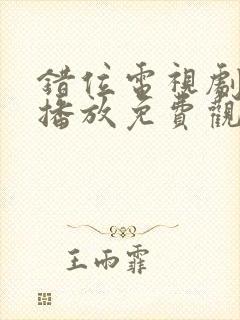 錯位電視劇
播放免費觀
王雨霏